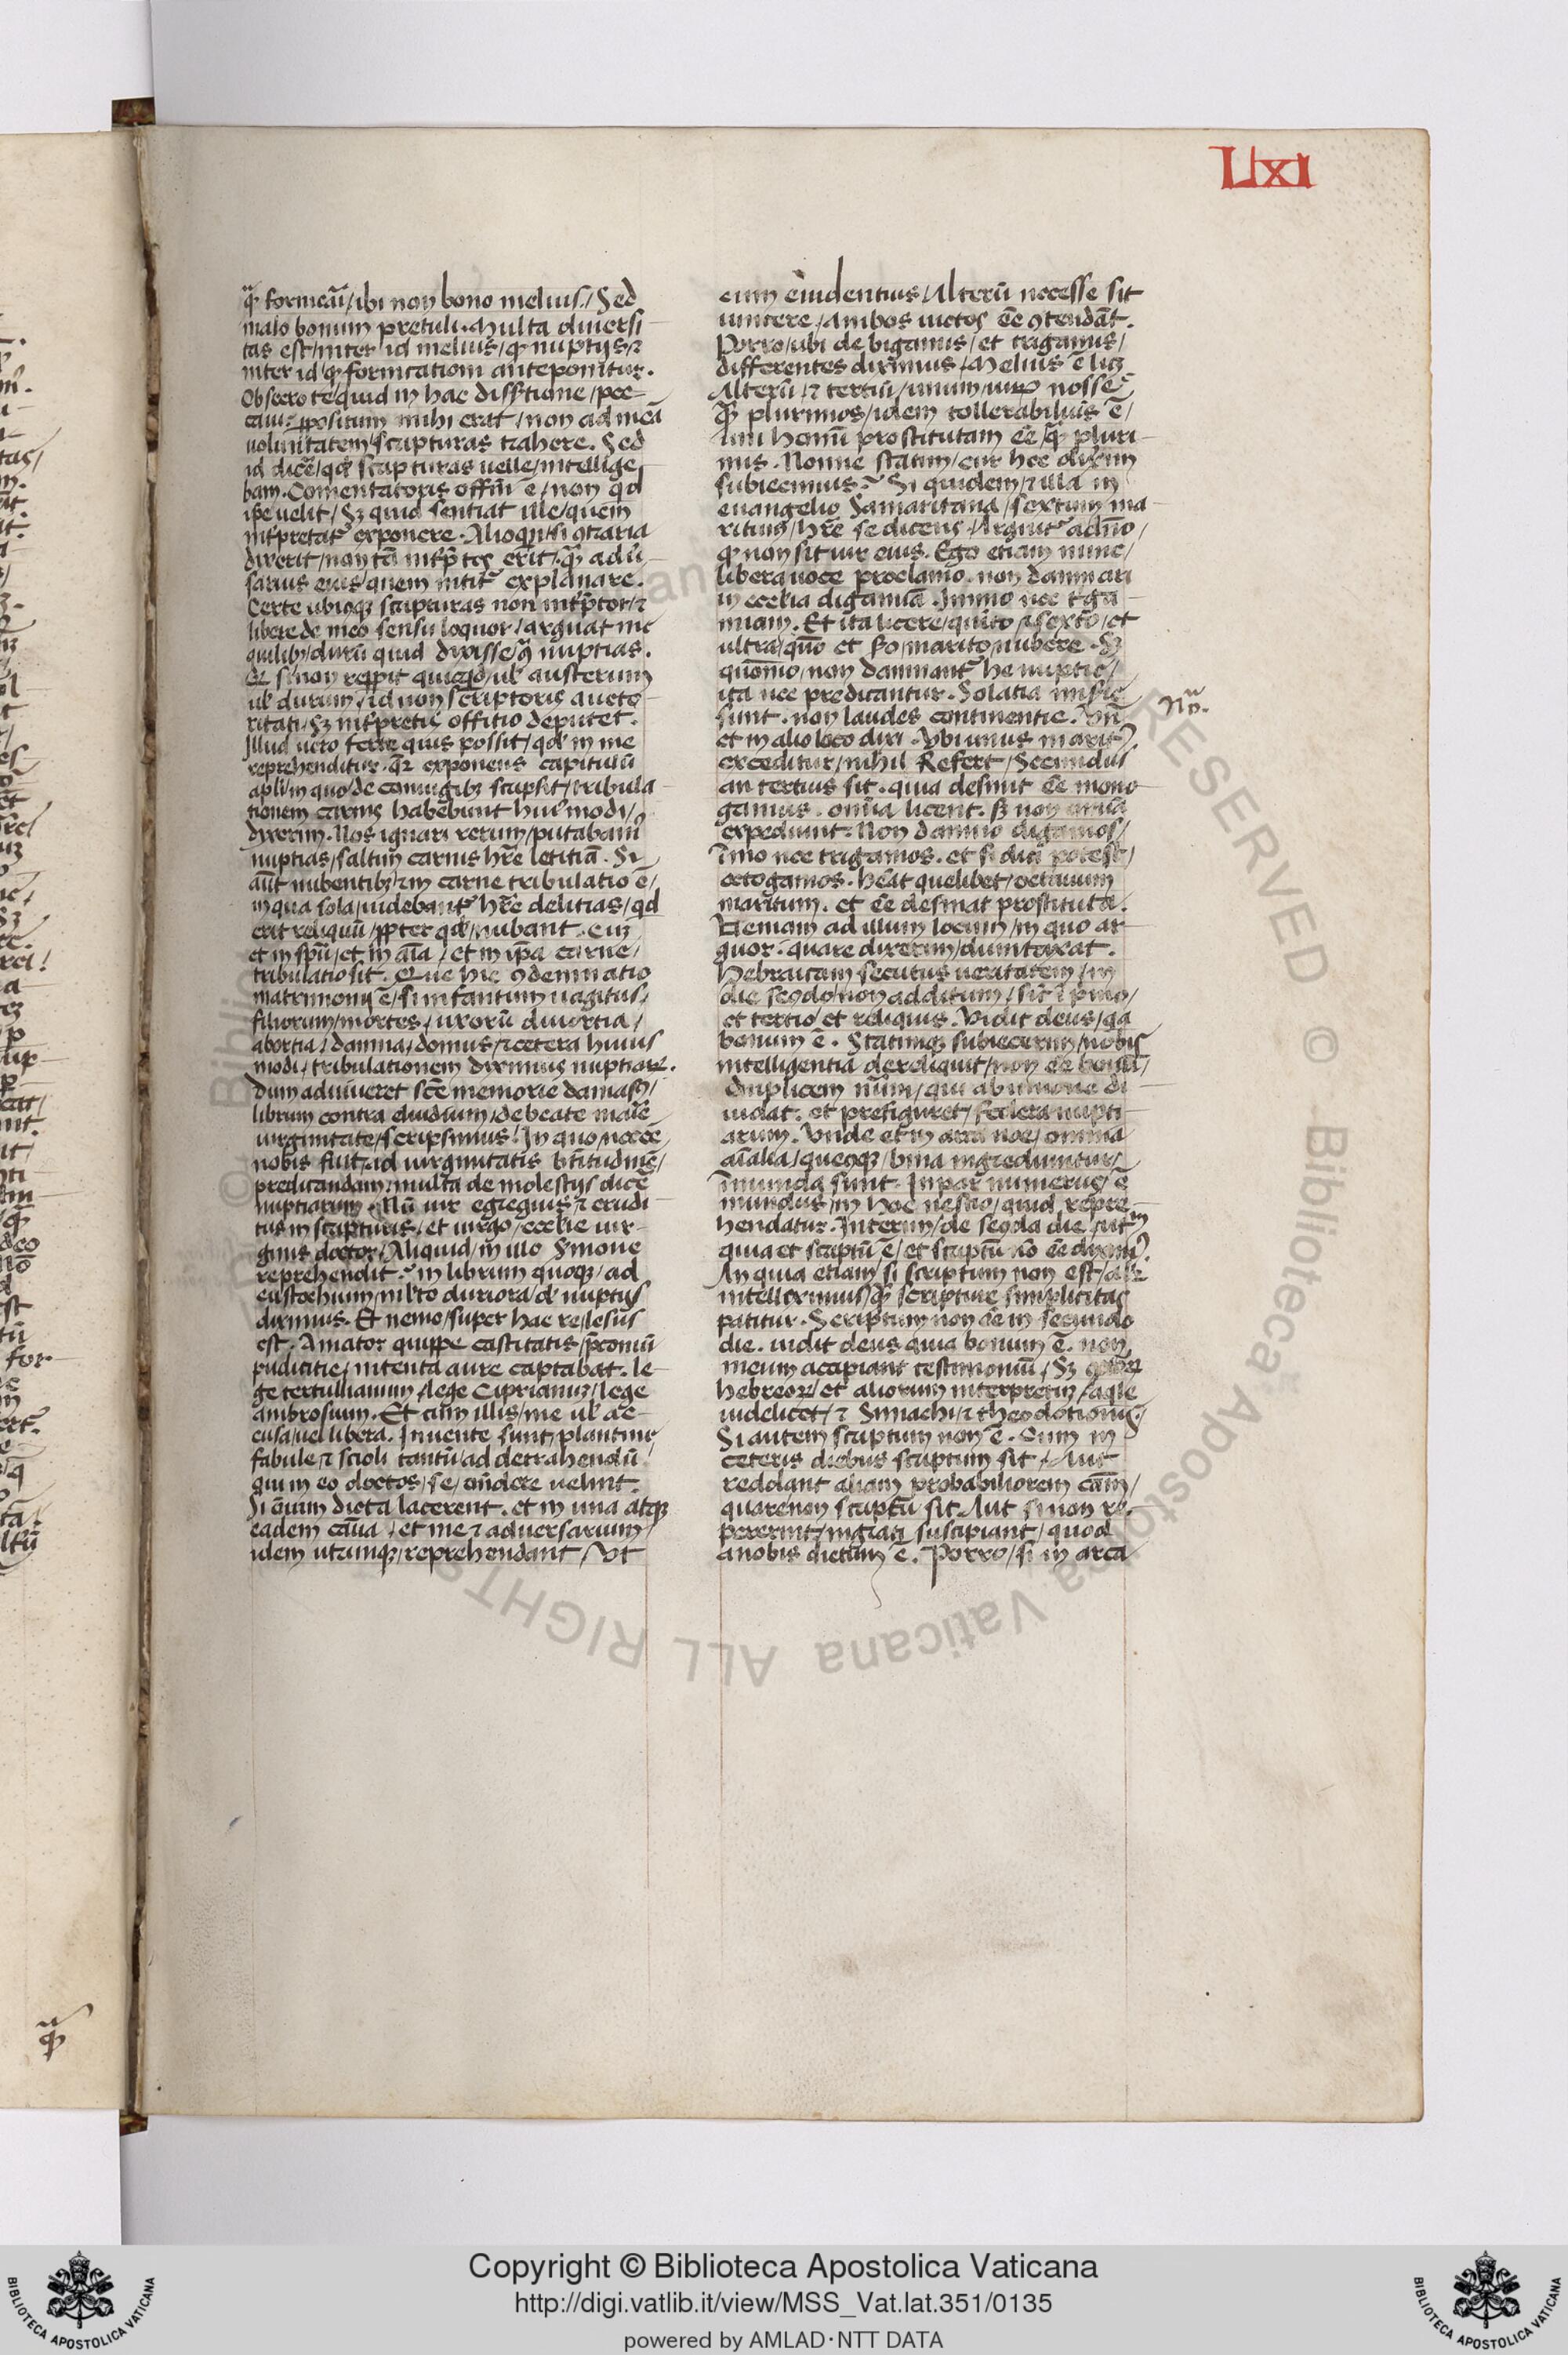 Lixi
qͣ formicaꝛ̃/ibi non bono melius/Sed
malo bonum pretuli. Multa diuersi
tas est/inter id melius/qd nuptijs/⁊
inter id qd fornicationi anteponitur.
Obsecro te quid in hac disp̃tione/pec
caui? ꝓpositum mihi erat/non ad meã
uoluntatem/scripturas trahere. Sed
id dicẽ/qd scripturas uelle/intellige
bam. Comentatoris offm̃ ẽ/non qd
ip̃e uelit/Sꝫ quid sentiat ille/quem
int̃pretat᷑ exponere. Alioqn̄/si ↄtraria
dixerit/non tã int̃p̃tes erit/q̃ adũ
sarius eius/quem nitit᷑ explanare.
Certe ubicqꝫ scripturas non int̃p̃tor/⁊
libere de meo sensu loquor/arguat me
quilibꝫ/durũ quid dixisse/ꝯ̃ nuptias.
Qd si non repp̃it quicqd̃/ul̃ austerum
ul̃ durum/id non scriptoris aucto
ritati/Sꝫ int̃pretis offitio deputet.
Illud uero ferre quis possit/qd̃ in me
reprehenditur. qꝛ exponens capitulũ
apl̃i/in quo/de coniugibꝫ scripsit/tribula
tionem carnis habebunt hui᷒modi/
dixerim. Nos ignari rerum/putabam᷒
nuptias/saltim carnis hr̃e letitiã. Si
aũt nubentibꝫ/⁊ in carne tribulatio ẽ/
in qua sola/uidebant᷑ hr̃e delitias/qd
erit reliquũ/ꝓpter qd̃/nubant. cũ
et in spũ/et in aĩa/et in ip̃a carne/
tribulatio sit. Que hic ↄdemnatio
matrimonij ẽ/si infantium uagitus/
filiorum/mortes/uxorũ diuortia/
abortia/damna/domus/⁊ cetera huius
modi/tribulationem diximus nuptiaꝝ.
Dum adiuueret scẽ memorie damasꝫ/
librum contra eluidium/de beate marie
uirginitate/scripsimus! In quo/necesse
nobis fuit/ad uirginitatis b̃titudinẽ/
predicandam/multa de molestijs dicẽ
nuptiarum. Nũ uir egregius ⁊ erudi
tus in scripturis. et uirgo/ecclie uir
ginis doctor/Aliquid/in illo Sr̃mone
reprehendit? in librum quoqꝫ/ad
eustochium/mlto duriora/d̃ nuptijs
diximus. Et nemo/super hac re/lesus
est. Amator quippe castitatis/p̃coniũ
pudicitie/intenta aure captabat. le
ge tertullianum/lege Ciprianuꝫ/lege
ambrosium. Et cum illis/me ul̃ ac
cusa/uel libera. Inuente sunt/plantine
fabule/⁊ scioli tantũ/ad detrahendũ/
qui in eo doctos/se/ondere uelint.
Si õnium dicta lacerent. et in una atqꝫ
eadem cãusa/et me ⁊ aduersarium/
idem utrunqꝫ/reprehendant/Vt
cum euidentius/Alterũ necesse sit
uincere/ambos uictos eẽ ↄtendãt.
Porro/ubi de bigamis/et trigamis/
differentes diximus/Melius ẽ licꝫ
Alterũ/⁊ tertiũ/unum/uiꝝ nosse?
q̃ plurimos/idem tollerabilius ẽ/
uni hom̃i prostitutam eẽ/q̃ pluri
mis. Nonne statim/cur hec dixerim
subiecimus? Si quidem/⁊ illa in
euangelio Samaritana/sextum ma
ritum/hr̃e se dicens/Arguit᷑ a dño/
qd non sit uir eius. Ego etiam nunc/
libera uoce proclamo. non damnari
in ecclia digamiã. Immo nec t̃ga
miam. Et ita licere/quĩto/⁊ sexto/et
ultra/quõ et Scd̃o/marito/nubere. Sꝫ
quom̃o/non damnant᷑ he nuptie/
ita nec predicantur. Solatia miserie
sunt. non laudes continentie. Vñ
No.
et in alio loco dixi. Vbi unus marit᷒
exceditur/nihil Refert/Secundus
an tertius sit. quia desinit eẽ mono
gamus. omnia licent. sꝫ non omnia
expediunt. Non damno digamos/
ĩmo nec trigamos. et si dici potest/
octogamos. heãt quelibet/octauum
maritum. et eẽ desinat prostituta.
Veniam ad illum locum/in quo ar
guor. quare dixerim/dumtaxat.
hebraicam secutus ueritatem/in
die secdo/non additum/sic̃ ĩ pmo/
et tertio/et reliquis. Vidit deus/qa
bonum ẽ. Statimqꝫ subiecerim/nobis
intelligentiã dereliquit/non eẽ bonũ/
duplicem nũm/qui ab unione di
uidat. et prefiguret/federa nupti
arum. Vnde et in arca noe/omnia
aĩalia/quecqꝫ/bina ingrediuntur/
ĩmunda sunt. Impar numerus/ẽ
mundus/in hoc nescio/quid repre
hendatur. Interim/de secda die/
quia et scriptũ ẽ/et scriptũ nõ eẽ diximꝰ.
An quia etiam si scriptum non est/alr̃
intelleximus/q̃ scripture simplicitas
patitur. Scriptum non eẽ in secundo
die. uidit deus quia bonum ẽ. non
meum accipiant testimoniũ/Sꝫ
hebreoꝝ/et aliorum interpretũ/aqle
uidelicet/⁊ Simachi/⁊ theodotionis/
Si autem scriptum non ẽ. Cum in
ceteris diebus scriptum sit/Aut
reddant aliam probabiliorem cãm/
quare non scriptũ sit. Aut si non re
pererint/ingrati suscipiant/quod
a nobis dictum ẽ. Porro/si in arca
Copyright © Biblioteca Apostolica Vaticana
http://digi.vatlib.it/view/MSS_Vat.lat.351/0135
powered by AMLAD·NTT DATA
BIBLIOTECA APOSTOLICA VATICANA
BIBLIOTECA APOSTOLICA VATICANA